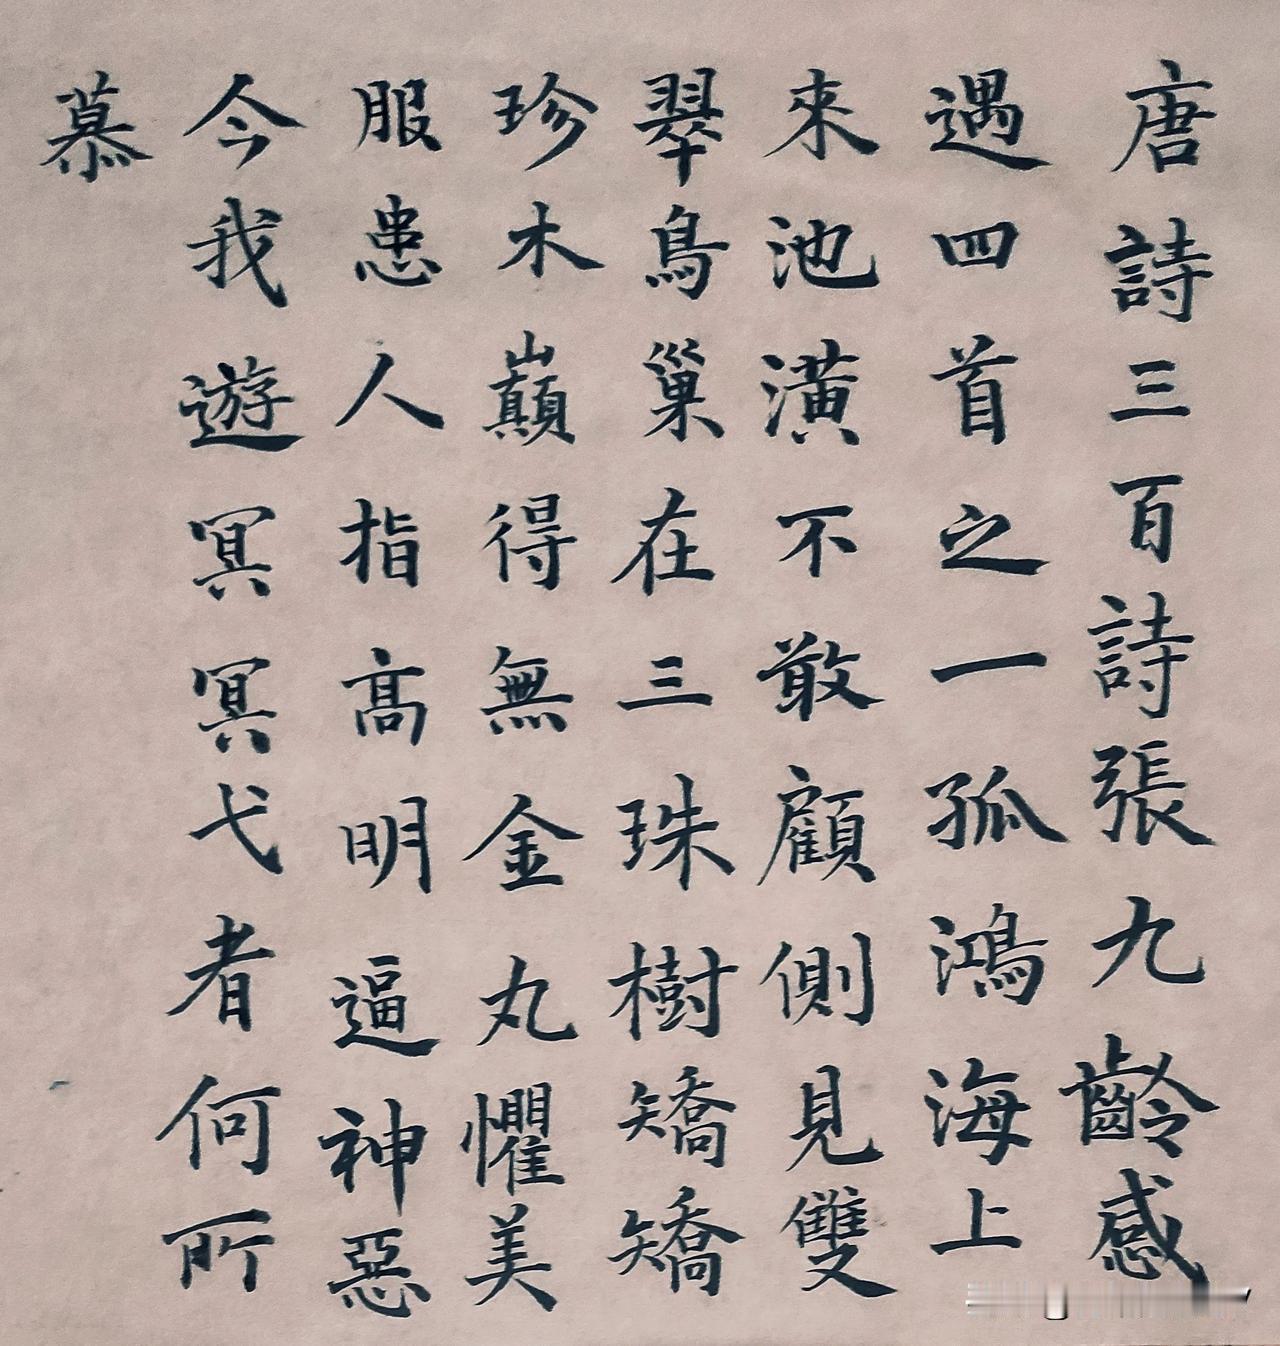 唐詩三百詩張九齡感
遇四首之一孤鴻海上
來池潢不敢顧側見雙
翠鳥巢在三珠樹矯矯
珍木巔得無金丸懼美
服患人指高明逼神惡
今我遊冥冥弋者何所
慕